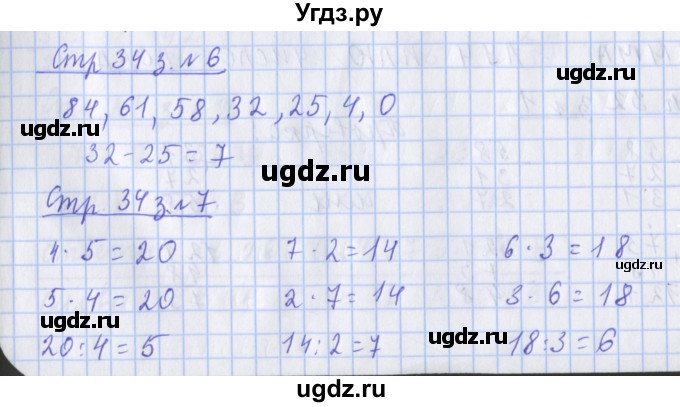 Угдз.ру
Стр 34 з. №6
84, 61, 58, 32, 25, 4, 0
ugdz.ru
ugdz.ru
32-25=7
ugdz.ru
Стр. 34 з №7
ugdz.ru
4·5=20 7·2=14 6·3=18
ugdz.ru
5·4=20 2·7=14 3·6=18
ugdz.ru
ugdz.ru
20:4=5 14:2=7 18:3=6
ugdz.ru
ugdz.ru